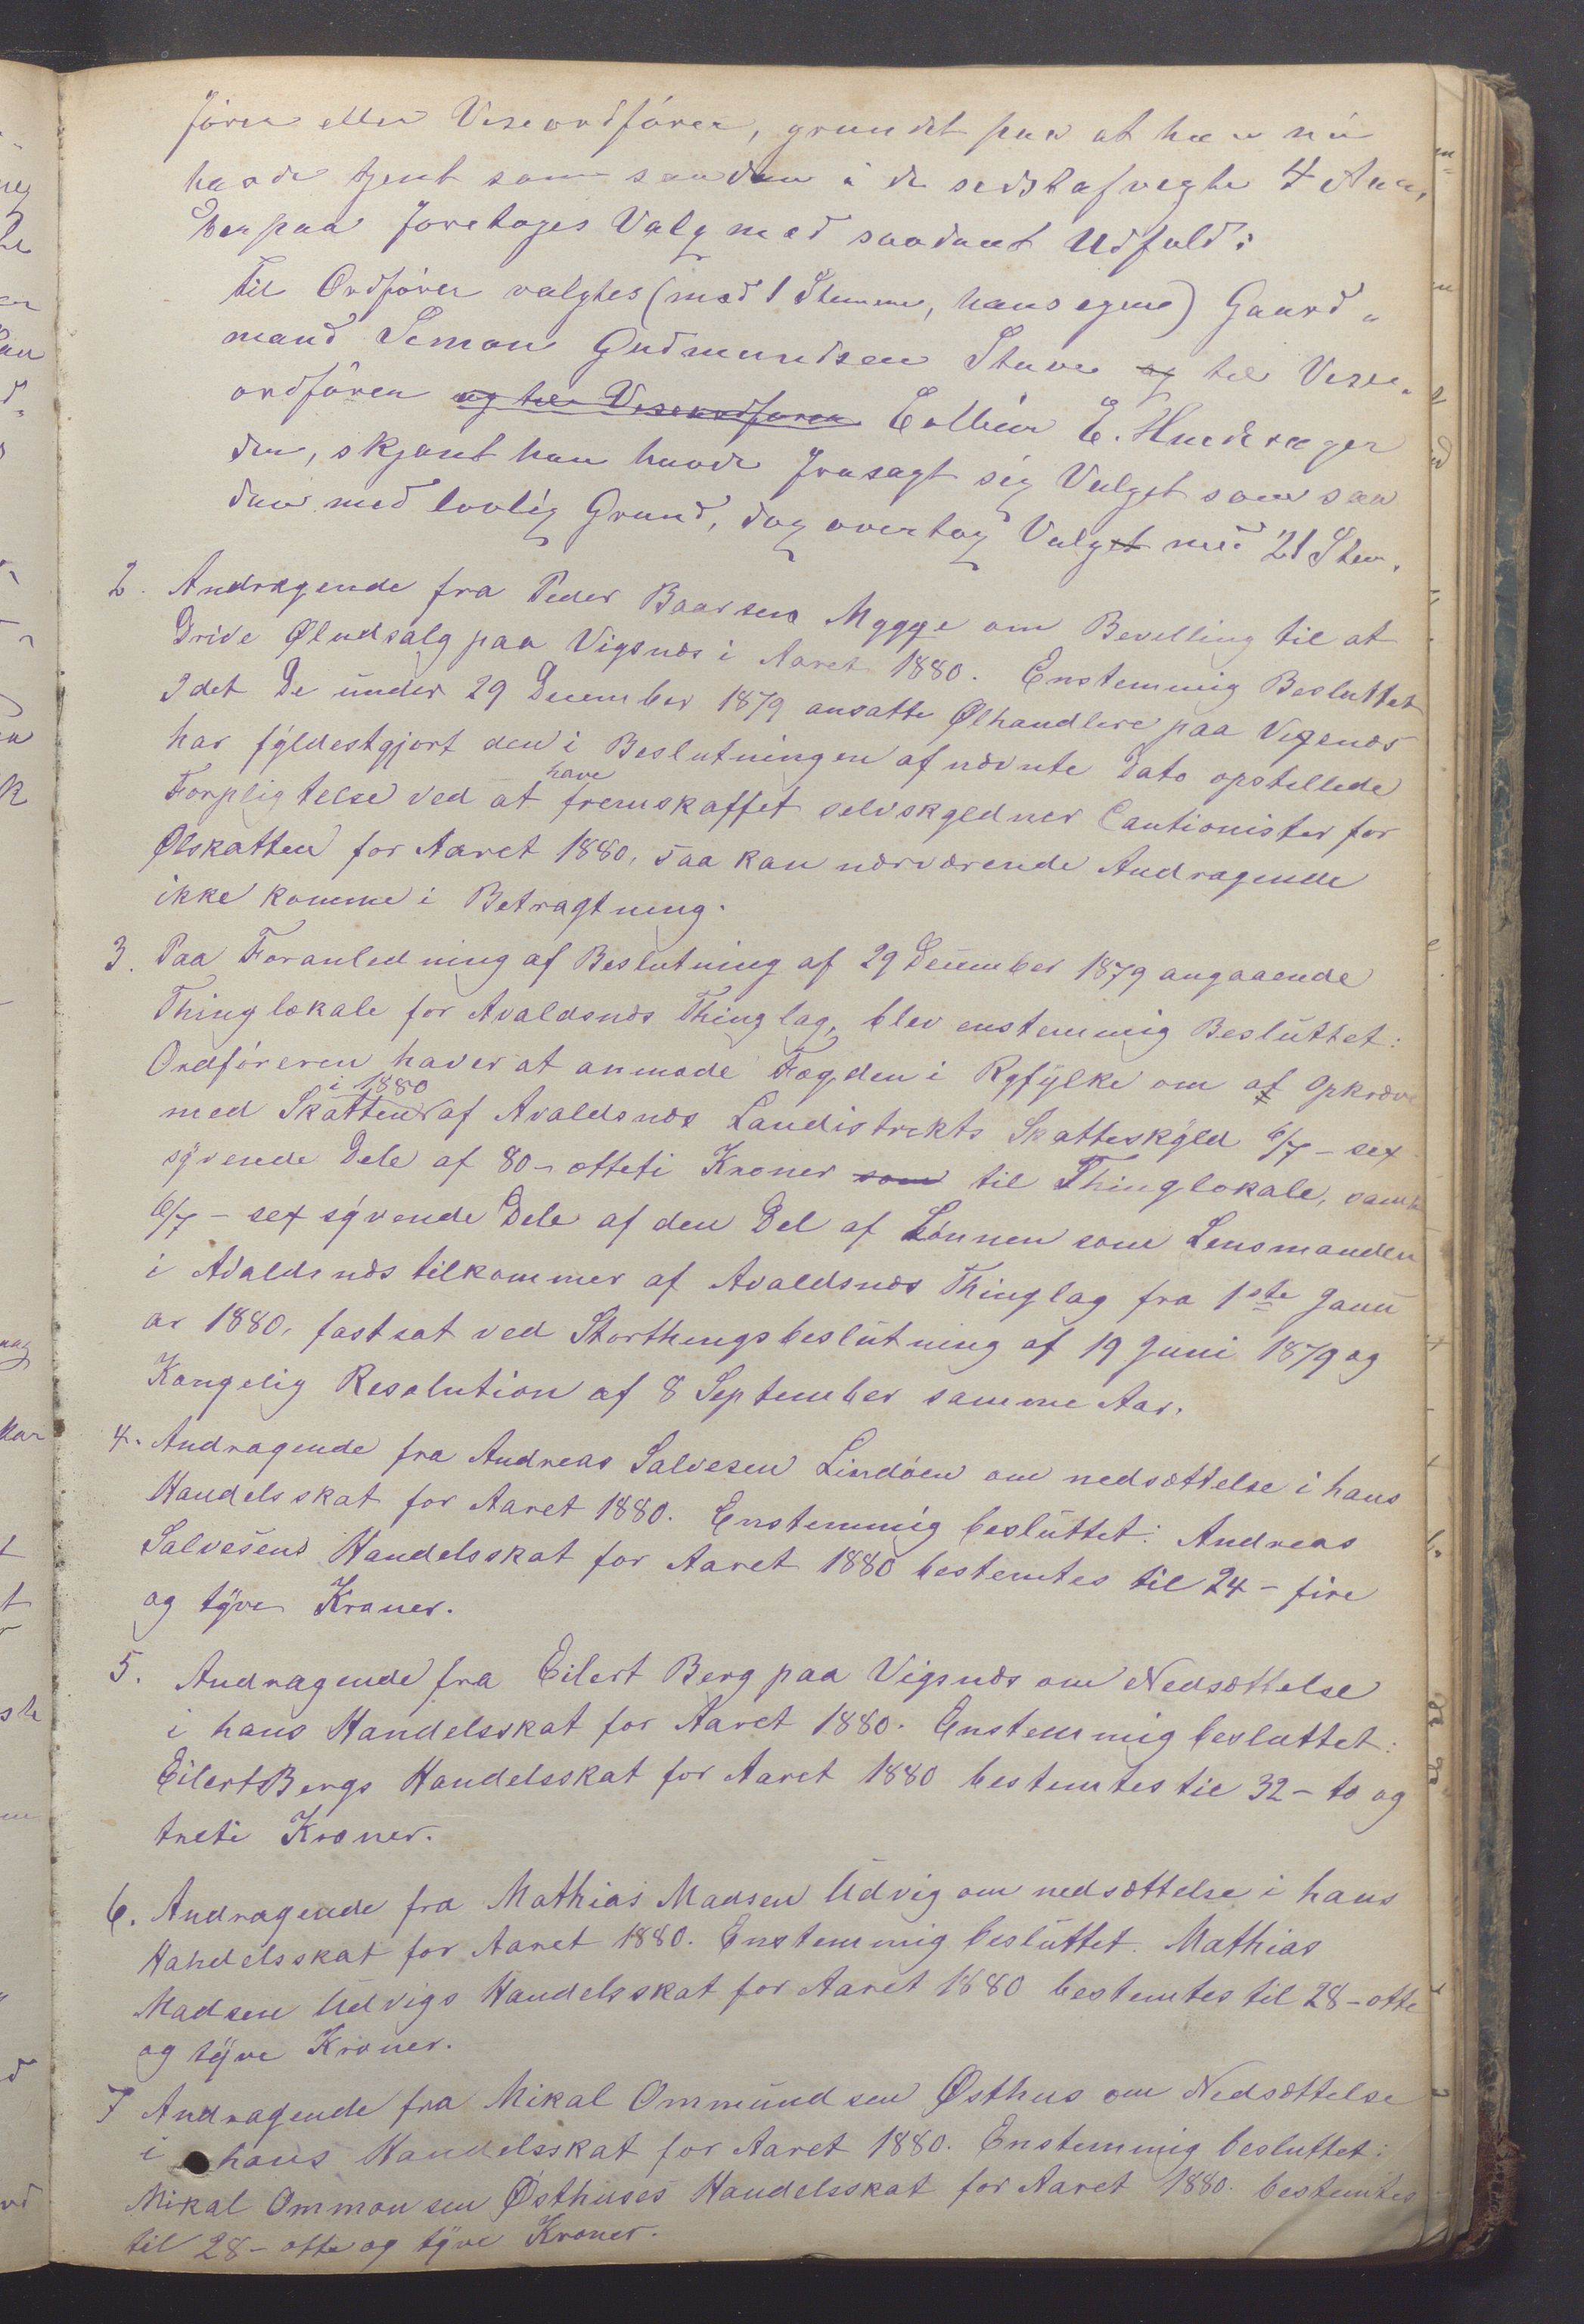 fører eller Viseordfører, grundet paa at han nu
havde tjent som saadan i de sidstafvegte 4 Aar,
Derpaa foretoges Valg med saadant Udfald:
Til Ordfører valgtes (med 1 Stemme, hans egne) Gaard„
mand Simon Gudmundsen Stave og til Vise„
ordfører og til Viseordfører Collbein E. Hinderager
der, skjønt han havde frasagt sig Valget som saa
dan med lovlig Grund, dog overtog Valget med 21 Stem.
2. Andragende fra Peder Baarsen Mygge om Bevilling til at
Drive Øludsalg paa Vigsnæs i Aaret 1880. Enstemmig Besluttet
Idet De under 29 December 1879 ansatte Ølhandlere paa Vigsnæs
har fyldestgjort den i Beslutningen af nævnte Dato opstillede
Forpligtelse ved at have fremskaffet selvskyldner Cautionister for
Ølskatten for Aaret 1880, saa kan nærværende Andragende
ikke komme i Betragtning.
3. Paa Foranledning af Beslutning af 29 December 1879 angaaende
Thinglokale for Avaldsnæs Thinglag, blev enstemmig Besluttet:
Ordføreren haver at anmode Fogden i Ryfylke om at Opkræve
med Skatten i 1880 af Avaldsnæs Landistrikts Skatteskyld 6/7 - sex
syvende Dele af 80 - otteti Kroner som til Thinglokale, samt
6/7 - sex syvende Dele af den Del af Lønnen som Lensmanden
i Avaldsnæs tilkommer af Avaldsnæs Thinglag fra 1ste Janu
ar 1880, fastsat ved Storthingsbeslutning af 19 Juni 1879 og
Kongelig Resolution af 8 September samme Aar.
4. Andragende fra Andreas Salvesen Lindøen om nedsættelse i hans
Handelsskat for Aaret 1880. Enstemmig besluttet: Andreas
Salvesens Handelsskat for Aaret 1880 bestemtes til 24 - fire
og tyve Kroner.
5. Andragende fra Eilert Berg paa Vigsnæs om Nedsættelse
i hans Handelsskat for Aaret 1880. Enstemmig besluttet:
Eilert Bergs Handelsskat for Aaret 1880 bestemtes til 32 - to og
treti Kroner.
6. Andragende fra Mathias Madsen Udvig om nedsættelse i hans
Handelsskat for Aaret 1880. Enstemmig besluttet. Mathias
Madsen Udvigs Handelsskat for Aaret 1880 bestemtes til 28 - otte
og tyve Kroner.
7 Andragende fra Mikal Ommundsen Østhus om Nedsættelse
i hans Handelsskat for Aaret 1880. Enstemmig besluttet:
Mikal Ommonsen Østhuses Handelsskat for Aaret 1880. bestemtes
til 28 - otte og tyve Kroner.